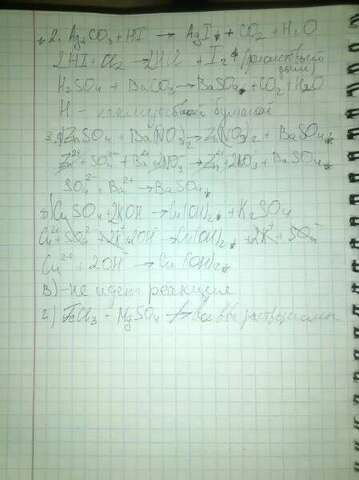 2. Ag₂CO₃ + HI → AgI↓ + CO₂ + H₂O
2HI + Cl₂ → 2HCl + I₂
H₂SO₄ + BaCO₃ → BaSO₄↓ + CO₂ + H₂O
H - бумагой
ZnSO₄ + Ba(NO₃)₂ → Zn(NO₃)₂ + BaSO₄↓
Zn²⁺ + SO₄²⁻ + Ba²⁺ + 2NO₃⁻ → Zn²⁺ + 2NO₃⁻ + BaSO₄↓
SO₄²⁻ + Ba²⁺ → BaSO₄↓
б) CuSO₄ + 2KOH → Cu(OH)₂↓ + K₂SO₄
Cu²⁺ + SO₄²⁻ + 2K⁺ + 2OH⁻ → Cu(OH)₂↓ + 2K⁺ + SO₄²⁻
Cu²⁺ + 2OH⁻ → Cu(OH)₂↓
в) - не идет реакция
г) FeCl₃ - MgSO₄ оба растворимы